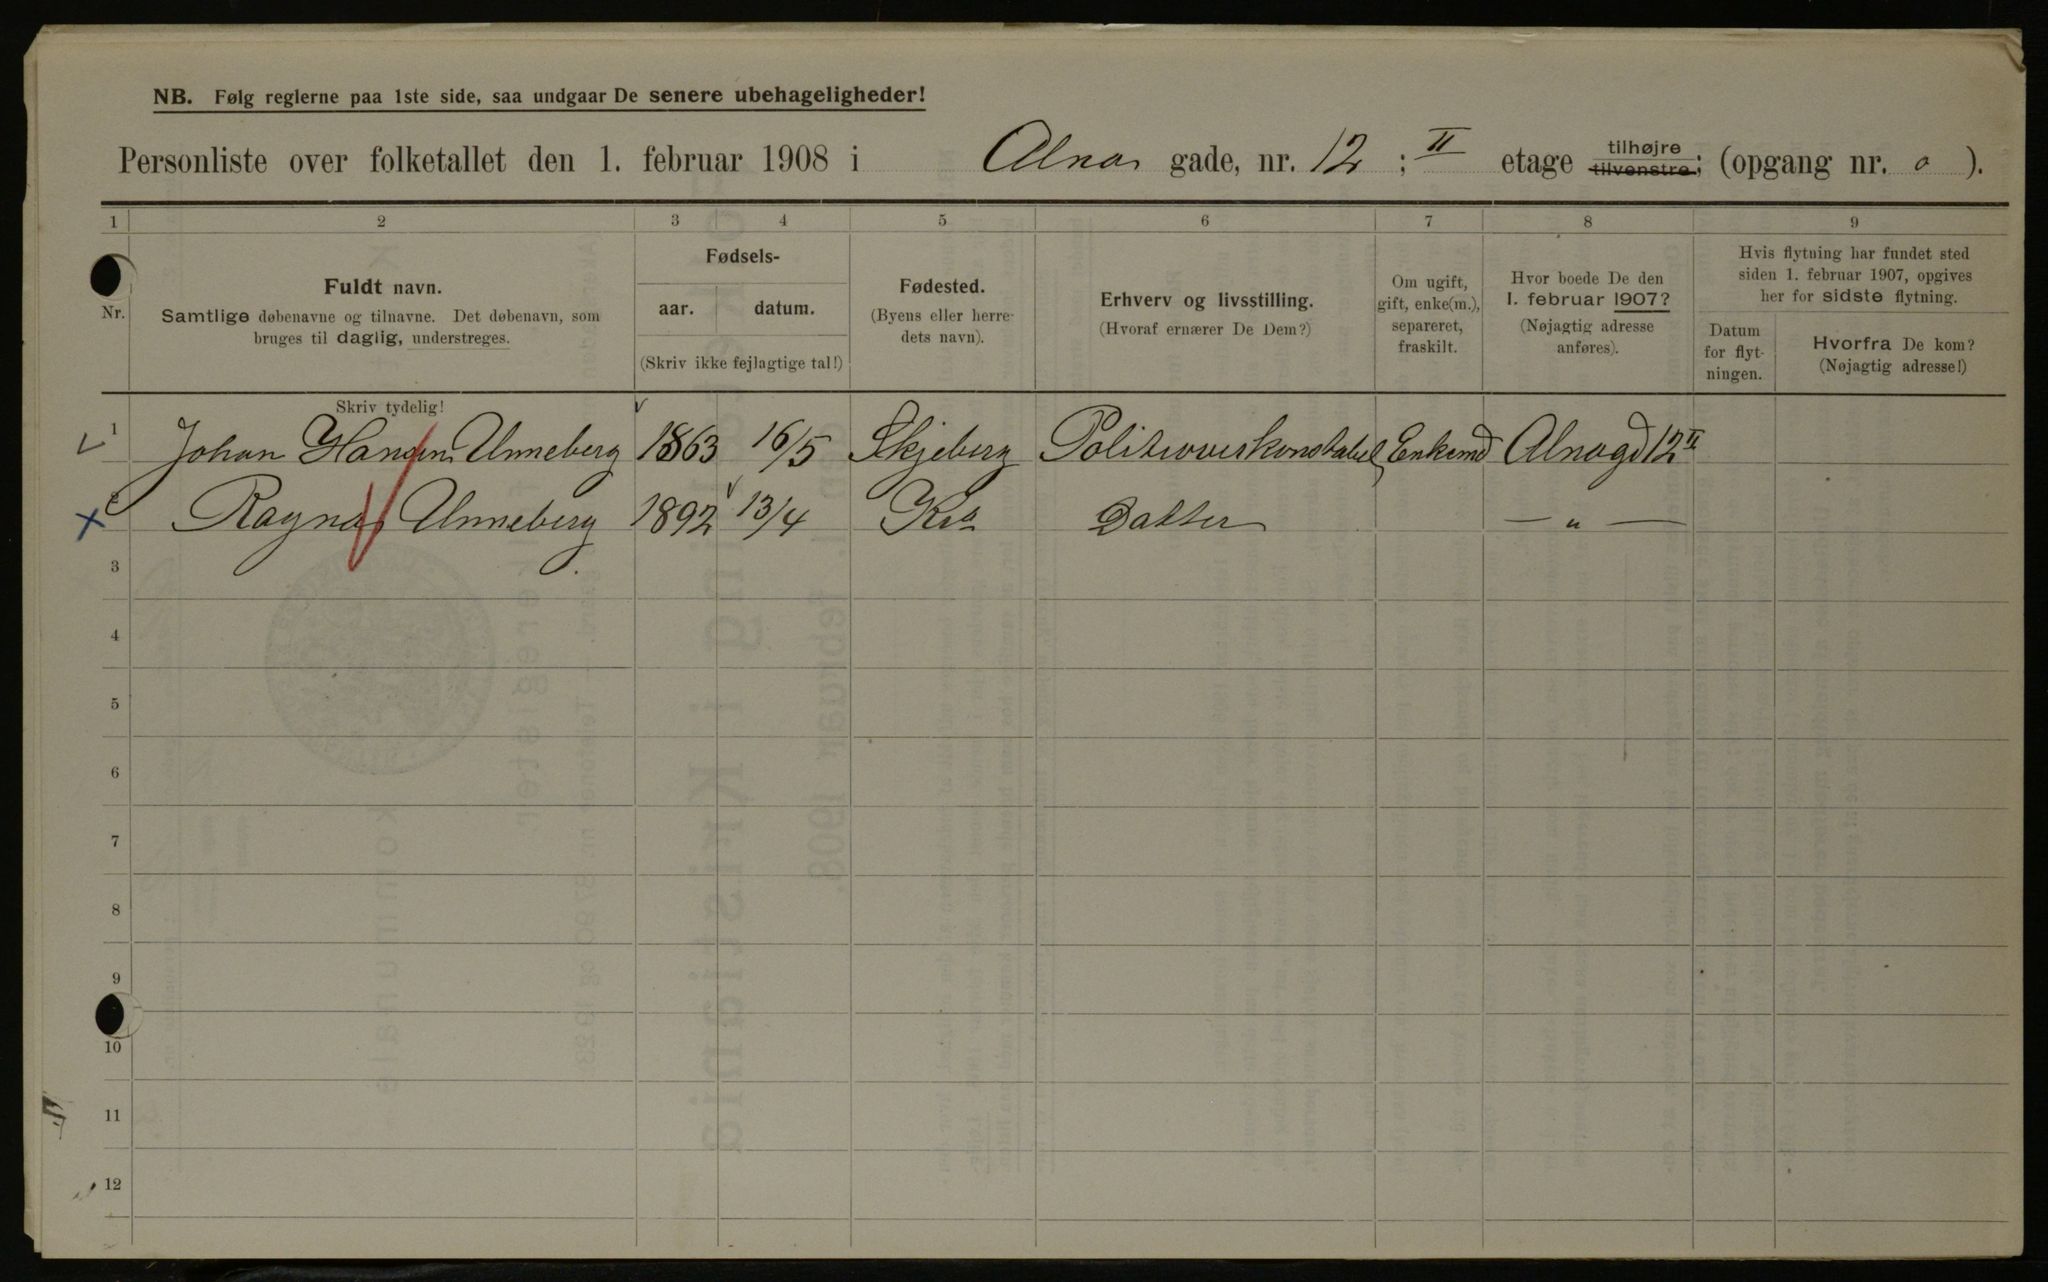 NB. Følg reglerne paa 1ste side, saa undgaar De senere ubehageligheder!
Personliste over folketallet den 1. februar 1908 i Alna gade, nr. 12 ; II etage tilhøjre tilvenstre; (opgang nr. o ).
1 2 3 4 5 6 7 8 9
Nr.
Fuldt navn.
Samtlige døbenavne og tilnavne. Det døbenavn, som
bruges til daglig, understreges.
Fødsels-
aar. datum.
(Skriv ikke fejlagtige tal!)
Fødested.
(Byens eller herre-
dets navn).
Erhverv og livsstilling.
(Hvoraf ernærer De Dem?)
Om ugift,
gift, enke(m.),
separeret,
fraskilt.
Hvor boede De den
1. februar 1907?
(Nøjagtig adresse
anføres).
Hvis flytning har fundet sted
siden 1. februar 1907, opgives
her for sidste flytning.
Datum
for flyt-
ningen.
Hvorfra De kom?
(Nøjagtig adresse!)
Skriv tydelig!
1 Johan Hansen Unneberg 1863 16/5 Skjeberg Politioverkonstabel Enkemd Alnagd 12 II
2 Ragna Unneberg 1892 13/4 Kra Datter — " —
3
4
5
6
7
8
9
10
11
12